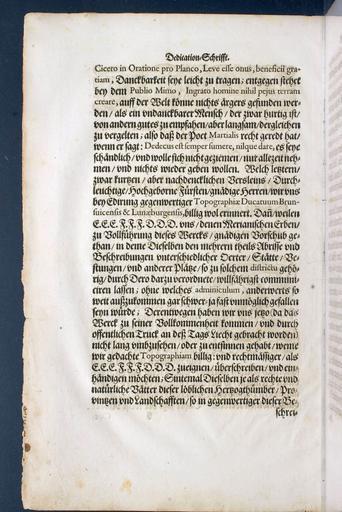 Dedication-Schrifft.
Cicero in Oratione pro Planco, Leve esse onus, beneficii gra-
tiam, Danckbarkeit seye leicht zu tragen; entgegen stehet
bey dem Publio Mimo, Ingrato homine nihil pejus terram
creare, auff der Welt könne nichts ärgers gefunden wer-
den / als ein vndanckbarer Mensch / der zwar hurtig ist /
von andern gutes zu empfahen / aber langsam / dergleichen
zu vergelten; also daß der Poet Martialis recht geredt hat /
wenn er sagt: Dedecus est semper sumere, nilque dare, es seye
schändlich / vnd wolle sich nicht geziemen / nur allezeit neh-
men / vnd nichts wieder geben wollen. Welch letztern /
zwar kurtzen / aber nachdencklichen Versleins / Durch-
leuchtige / Hochgeborne Fürsten / gnädige Herren / wir vns
bey Edirung gegenwertiger Topographiæ Ducatuum Brun-
suicensis & Lunæburgensis, billig wol erinnert. Dañ weilen
E.E.E. F.F.F. D.D.D. vns / denen Merianischen Erben /
zu Vollführung dieses Wercks / gnädigen Vorschub ge-
than / in deme Dieselben den mehrern theils Abrisse vnd
Beschreibungen vnterschiedlicher Oerter / Stätte / Ve-
stungen / vnd anderer Plätze / so zu solchem districtu gehö-
rig / durch Dero darzu verordnete / willfährigst communi-
ciren lassen; ohne welches adminiculum, anderwerts so
weit außzukommen gar schwer / ja fast vnmöglich gefallen
seyn würde; Derentwegen haben wir vns jetzo / da das
Werck zu seiner Vollkommenheit kommen / vnd durch
offentlichen Truck an deß Tags Liecht gebracht worden /
nicht lang vmbzusehen / oder zu entsinnen gehabt / weme
wir gedachte Topographiam billig: vnd rechtmässiger / als
E.E.E. F.F.F. D.D.D. zueignen / überschreiben / vnd ein-
händigen möchten; Sintemal Dieselben je als rechte vnd
natürliche Vätter dieser löblichen Hertzogthümber / Pro-
vintzen vnd Landschafften / so in gegenwertiger dieser Be-
schrei-